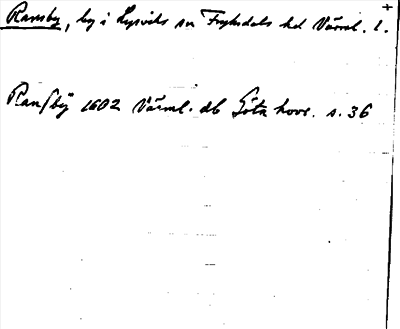 Ransby, by i Lysviks sn Fryksdals hd Värml. l.
Ranſbÿ 1602 Värml. db Göta hovr. s. 36